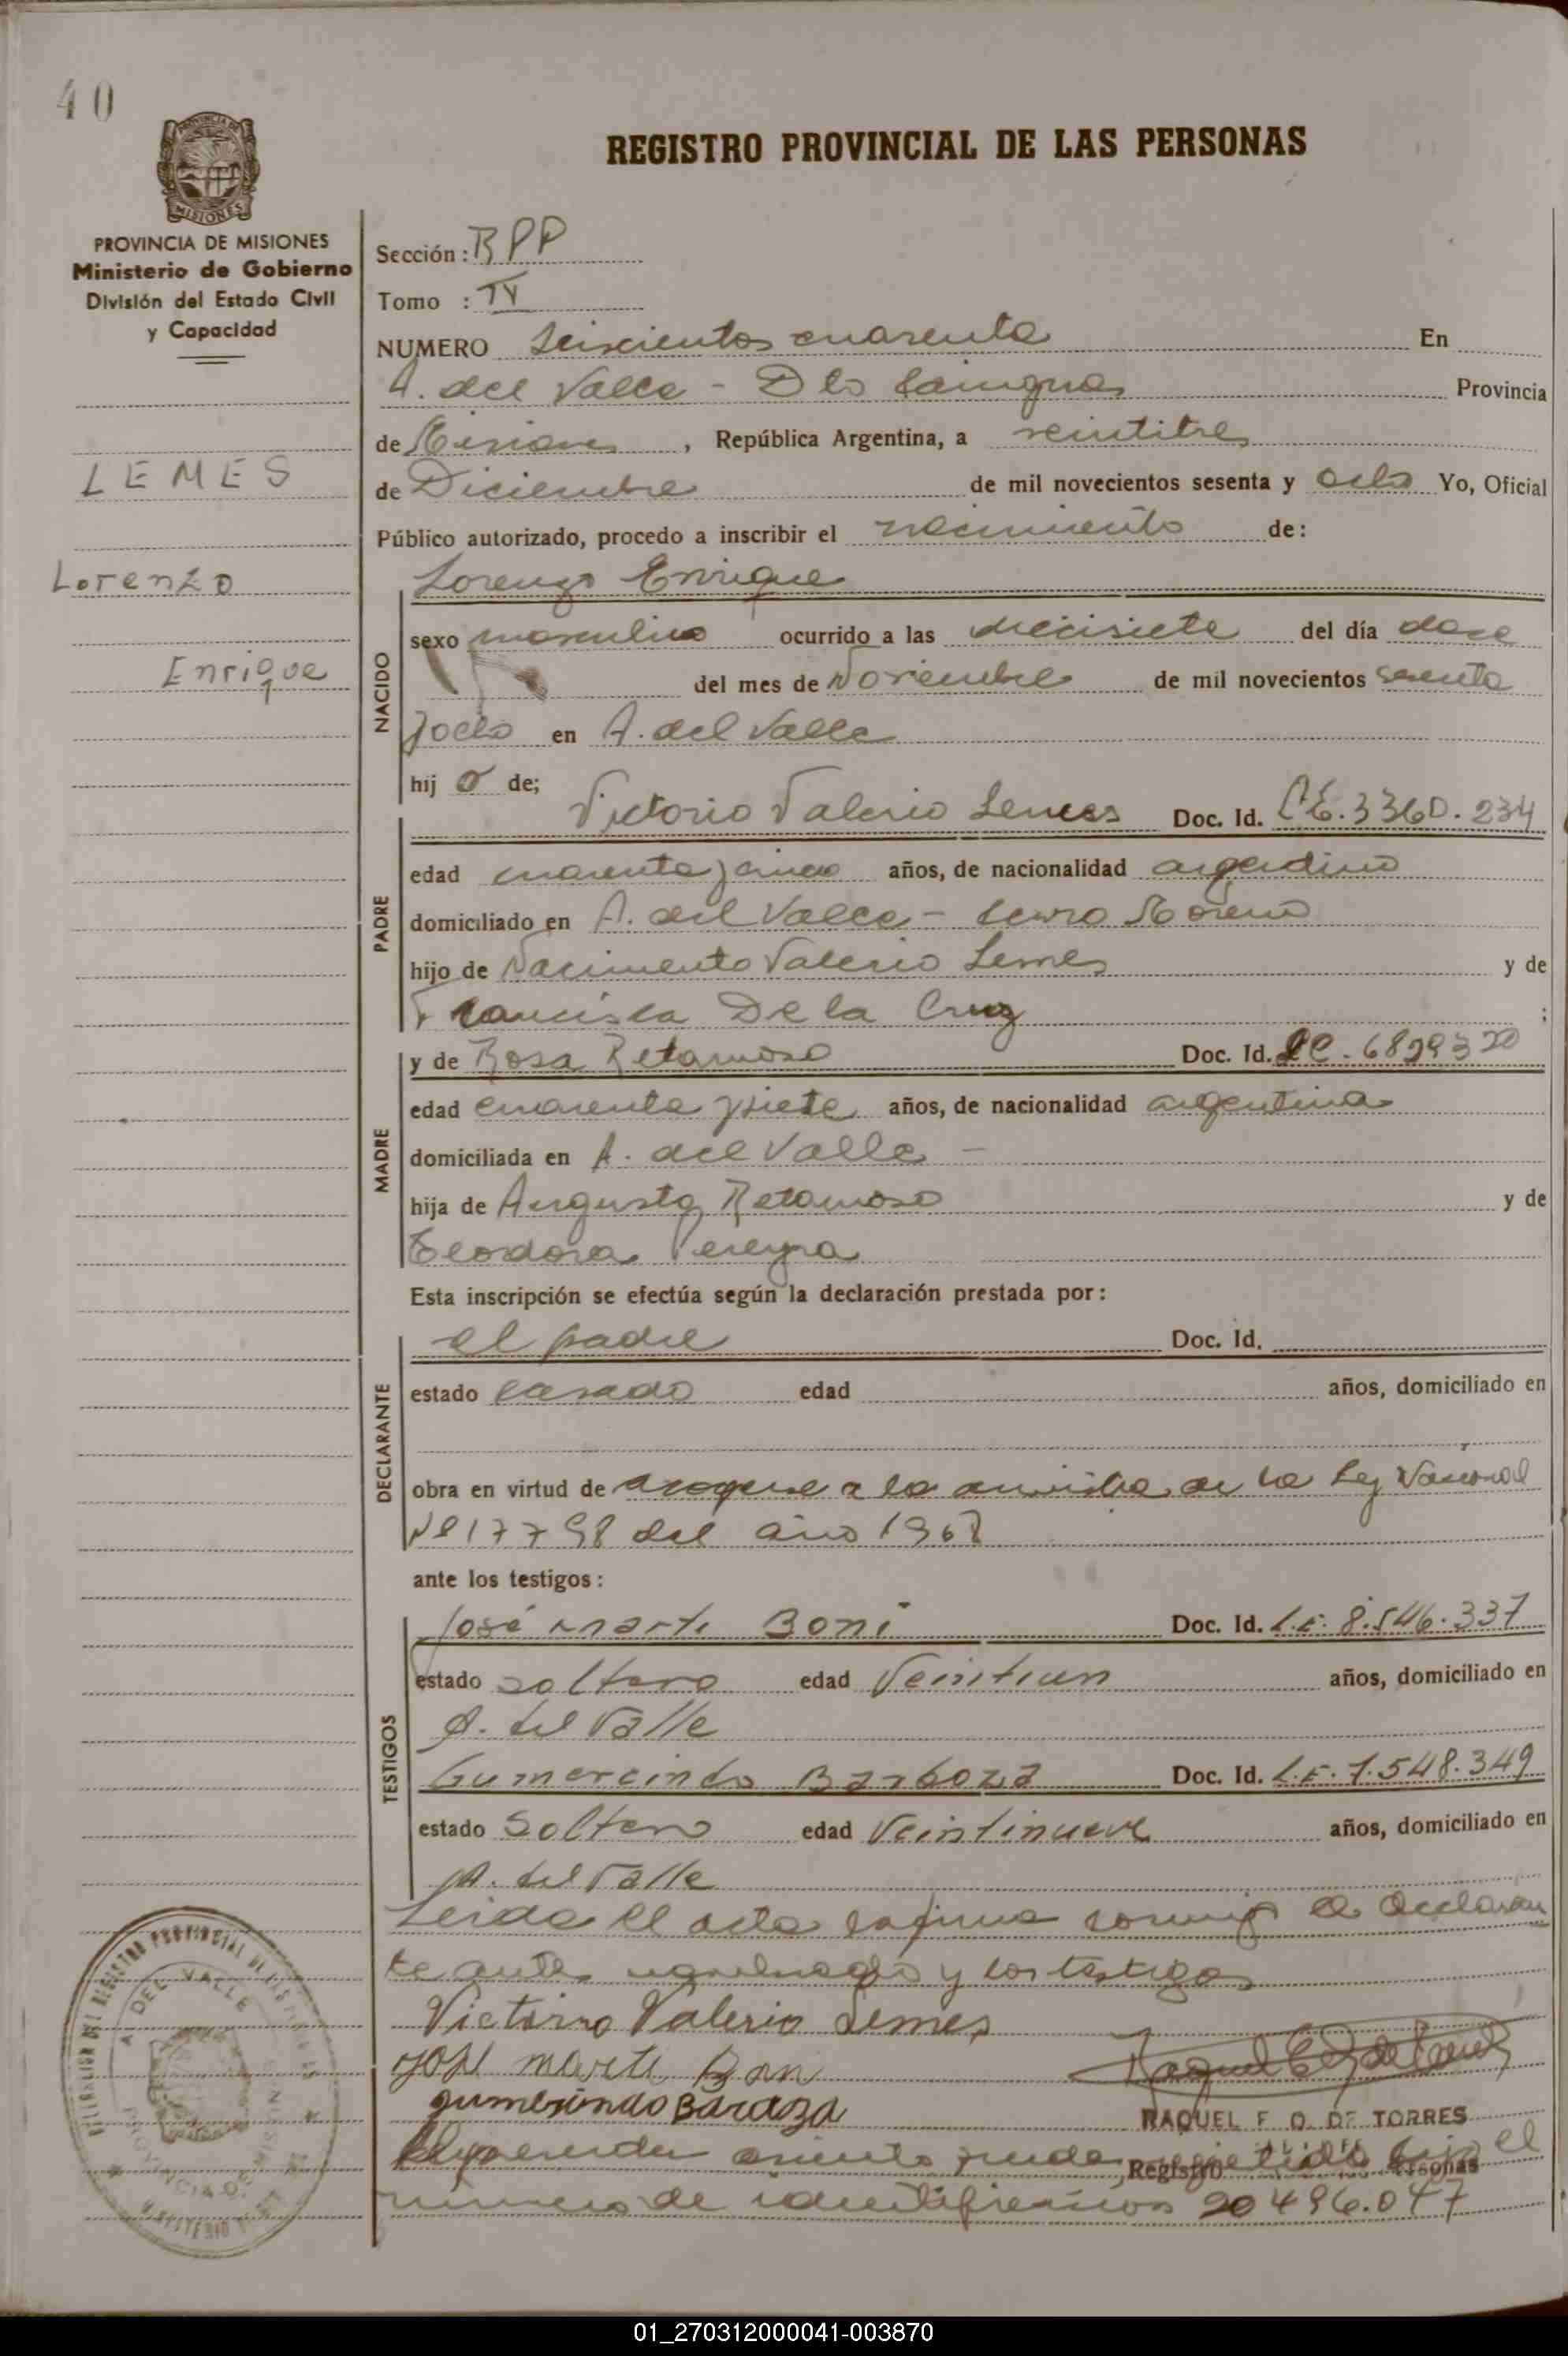 40
REGISTRO PROVINCIAL DE LAS PERSONAS
PROVINCIA DE MISIONES
Ministerio de Gobierno
División del Estado Civil
y Capacidad
LEMES
Lorenzo
Enrique
Sección: RPP
Tomo : IV
NUMERO Seiscientos cuarenta En
A. del Valle - Dto Cainguas Provincia
de Misiones, República Argentina, a veintitres
de Diciembre de mil novecientos sesenta y ocho Yo, Oficial
Público autorizado, procedo a inscribir el nacimiento de:
Lorenzo Enrique
NACIDO
sexo masculino ocurrido a las diecisiete del día doce
del mes de Noviembre de mil novecientos sesenta
y ocho en A. del Valle
hij o de;
PADRE
Victorio Valerio Lemes Doc. Id. 3360.234
edad cuarenta y cinco años, de nacionalidad argentino
domiciliado en A. del Valle - Cerro Moreno
hijo de Nacimento Valerio Lemes y de
Francisca De la Cruz ;
MADRE
y de Rosa Retamoso Doc. Id. LC.
edad cuarenta y siete años, de nacionalidad argentina
domiciliada en A. del Valle -
hija de Augusto Retamoso y de
Teodora Pereyra
Esta inscripción se efectúa según la declaración prestada por:
DECLARANTE
el padre Doc. Id.
estado casado edad años, domiciliado en
obra en virtud de acogerse a la amnistia de la Ley Nacional
Nº 17798 del año 1968
ante los testigos:
TESTIGOS
José Marti Boni Doc. Id. L.E. 8.546.337
estado soltero edad Veintiun años, domiciliado en
A. del Valle
Gumercindo Barboza Doc. Id. L.E. 7.548.349
estado Soltero edad Veintinueve años, domiciliado en
A. del Valle
Leida el acta la firma conmigo el declaran
te ante y los testigos
Victorio Valerio Lemes
José Marti Boni
RAQUEL F. O. DE TORRES
Registro Personas
El presente asiento queda bajo el
numero de identificacion 20496.047
A. DEL VALLE
01_270312000041-003870